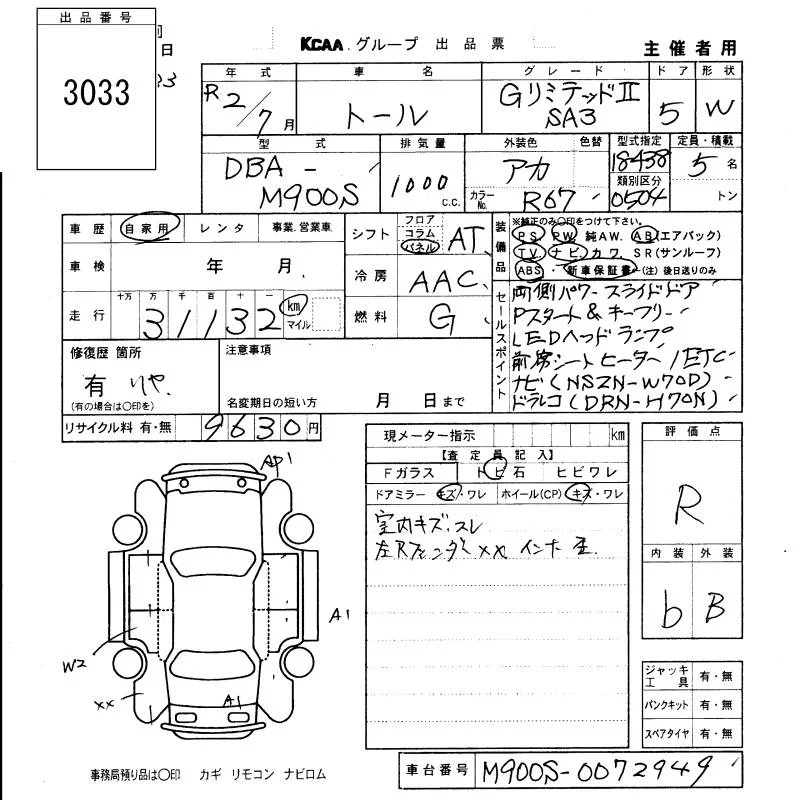 出品番号
3033
日
KCAA グループ 出品票
主催者用
年式 車名 グレード ドア 形状
R2/7月 トール GリミテッドII SA3 5 W
型式 排気量 外装色 色替 型式指定 定員・積載
DBA-M900S 1000 C.C. アカ 18438 5名
カラーNo. R67 類別区分 0504 トン
車歴 自家用 レンタ 事業.営業車
車検 年 月
走行 十万 万 千 百 十 一
31132 km マイル
シフト フロア コラム パネル AT
冷房 AAC
燃料 G
装備品 ※純正のみ〇印をつけて下さい。
PS PW 純AW. AB(エアバック)
TV. ナビ. カワ. SR(サンルーフ)
ABS ・ 新車保証書←(注)後日送りのみ
セールスポイント
両側パワースライドドア
Pスタート&キーフリー
LEDヘッドランプ
前席シートヒーター/ETC
ナビ(NSZN-W70D)
ドラレコ(DRN-H70N)
修復歴 箇所
有
(有の場合は〇印を)
注意事項
名変期日の短い方 月 日まで
リサイクル料 有・無 9630円
現メーター指示 km
【査定員記入】
Fガラス トビ石 ヒビワレ
ドアミラー キズ・ワレ ホイール(CP) キズ・ワレ
室内キズ.スレ
左Rフェンダー XX インナー歪
評価点
R
内装 外装
b B
A1
A1
A1
W2
XX
ジャッキ工具 有・無
パンクキット 有・無
スペアタイヤ 有・無
事務局預り品は〇印 カギ リモコン ナビロム
車台番号 M900S-0072949